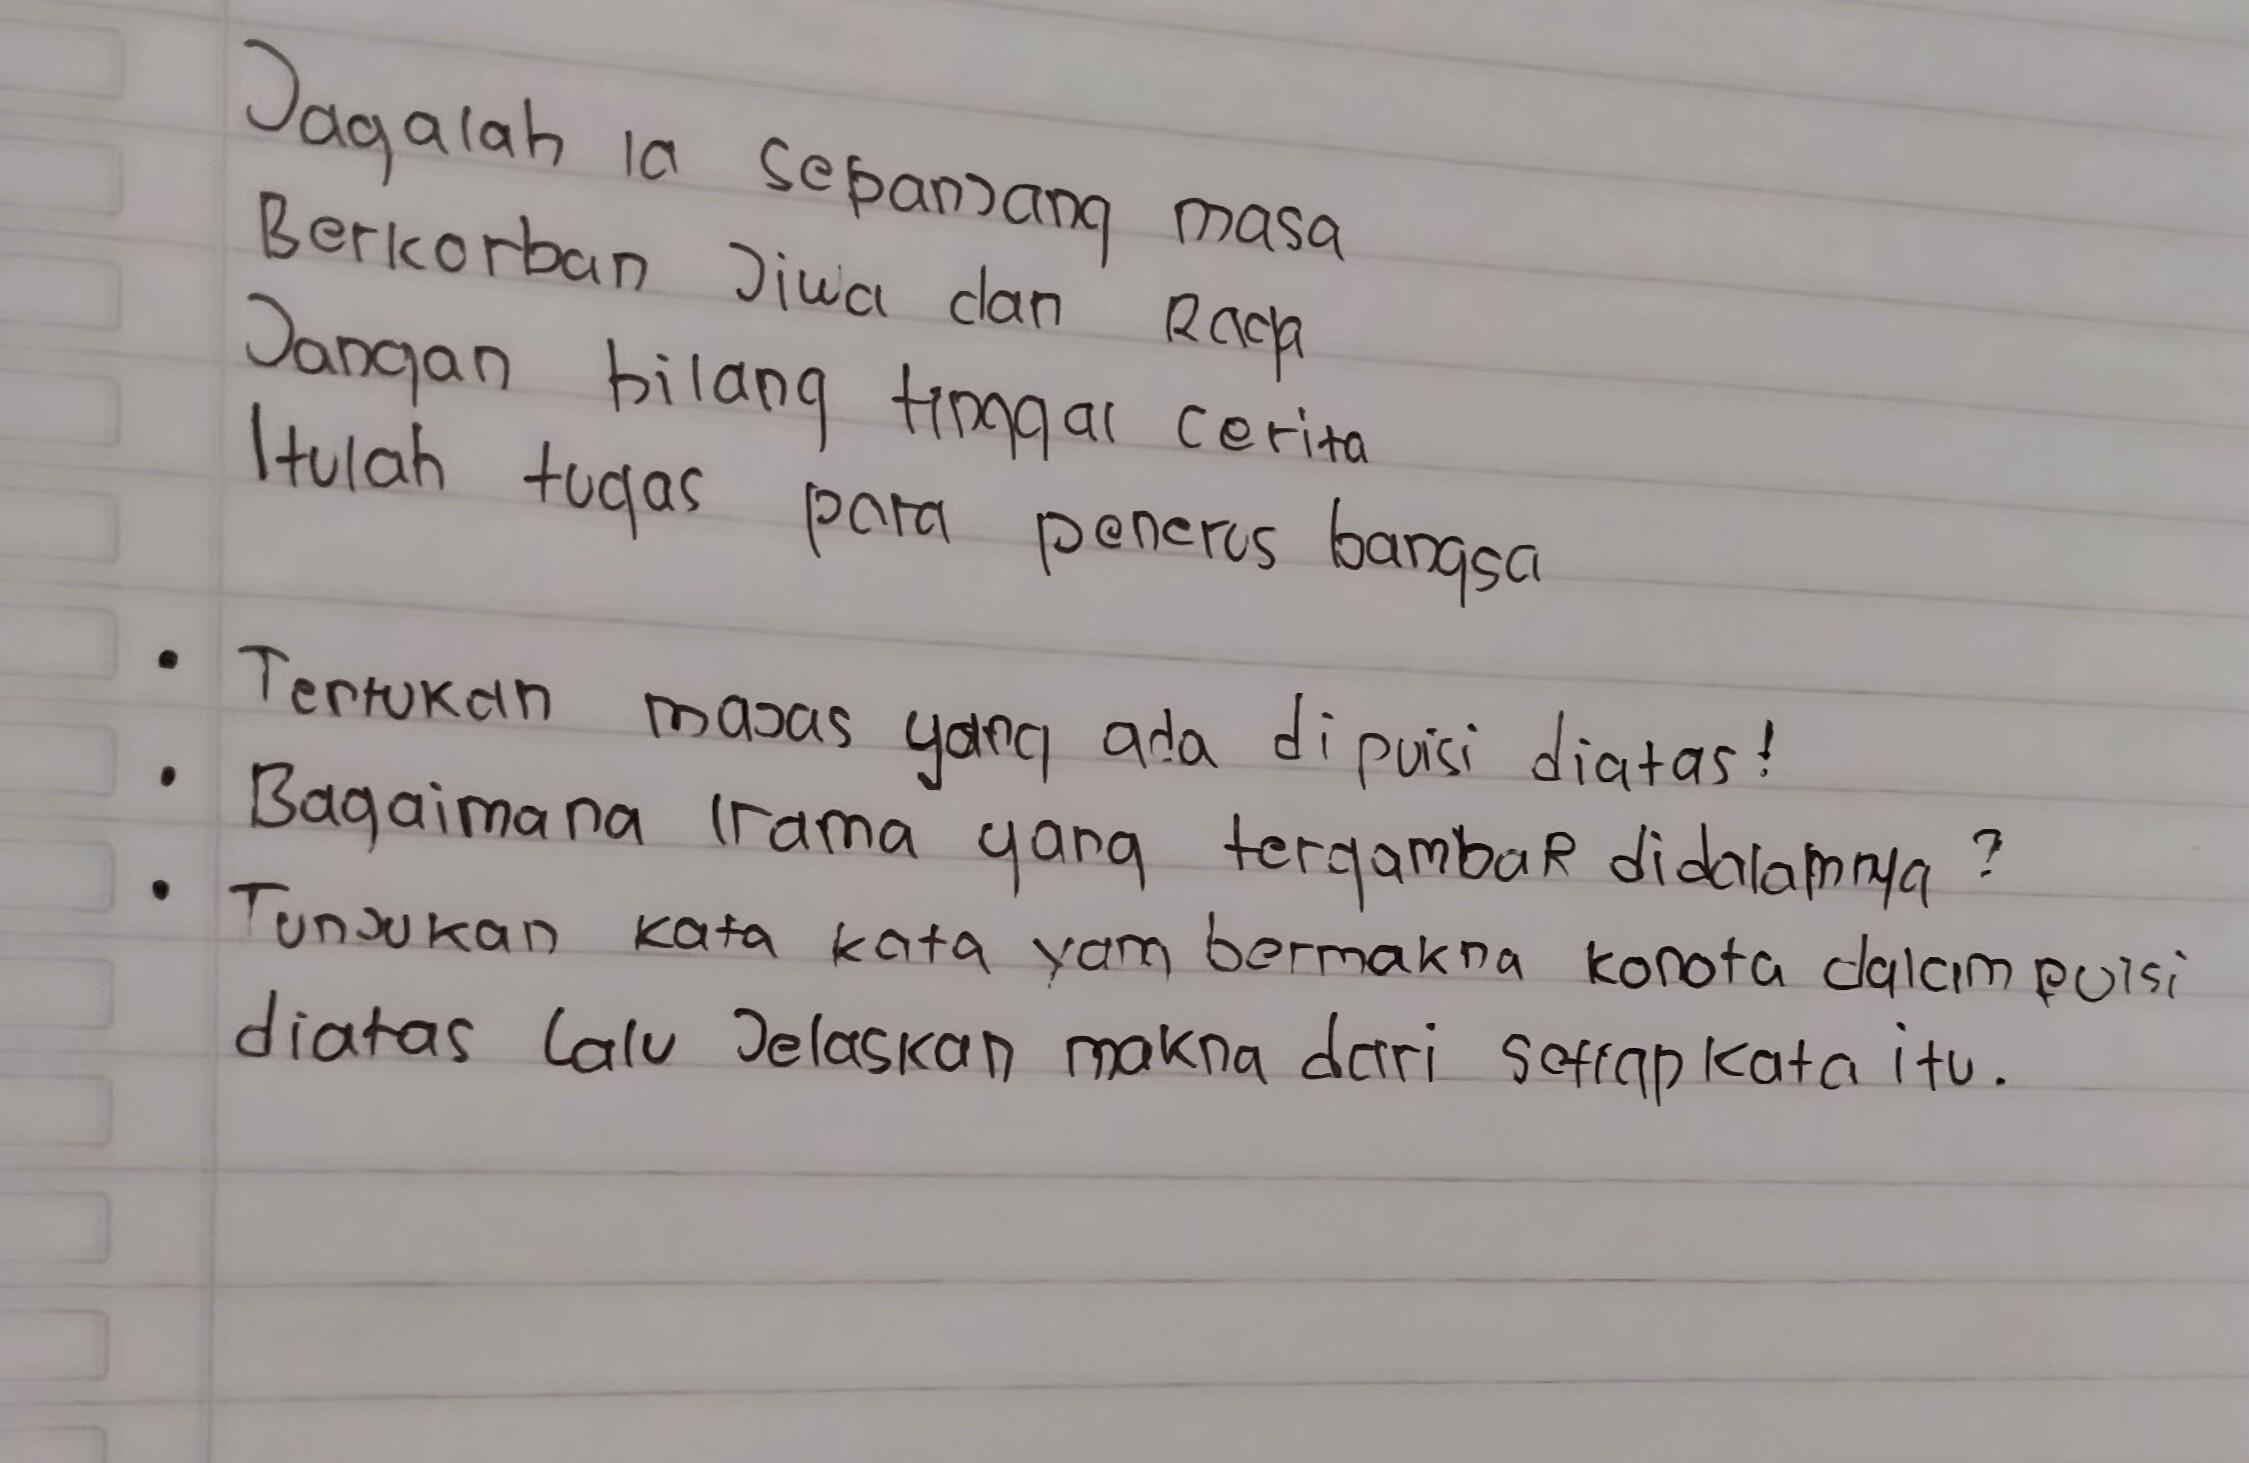 Jagalah ia sepanjang masa
Berkorban Jiwa dan Raga
Jangan bilang tinggal cerita
Itulah tugas para penerus bangsa
• Tentukan majas yang ada di puisi diatas!
• Bagaimana Irama yang tergambar didalamnya?
• Tunjukan kata kata yam bermakna konota dalam puisi
diatas lalu Jelaskan makna dari setiap kata itu.